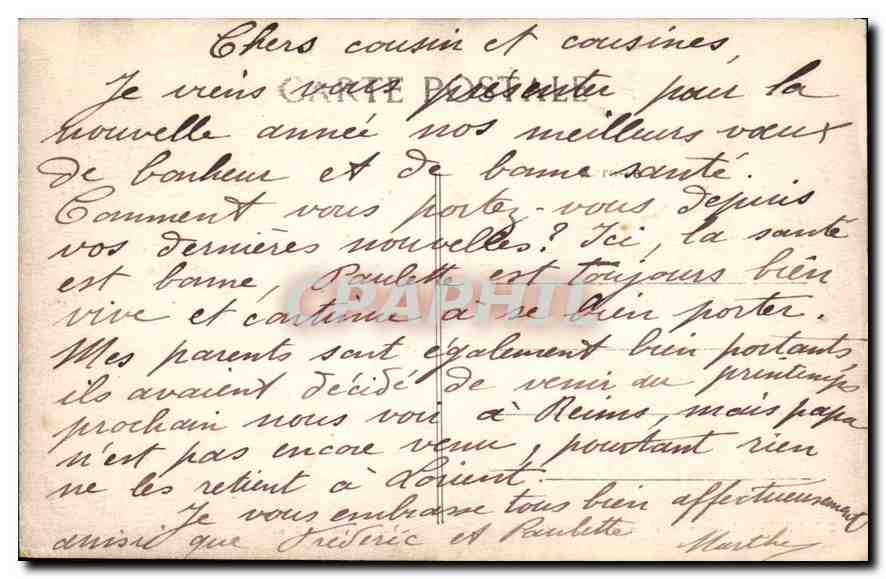 Chers cousin et cousines,
CARTE POSTALE
Je viens vous présenter pour la
nouvelle année nos meilleurs vœux
de bonheur et de bonne santé.
Comment vous portez-vous depuis
vos dernières nouvelles? Ici, la santé
est bonne, Paulette est toujours bien
CPAPHIL
vive et continue à se bien porter.
Mes parents sont également bien portants
ils avaient décidé de venir au printemps
prochain nous voir à Reims, mais papa
n'est pas encore venu, pourtant rien
ne les retient à Lorient.
Je vous embrasse tous bien affectueusement
ainsi que Frédéric et Paulette
Marthe